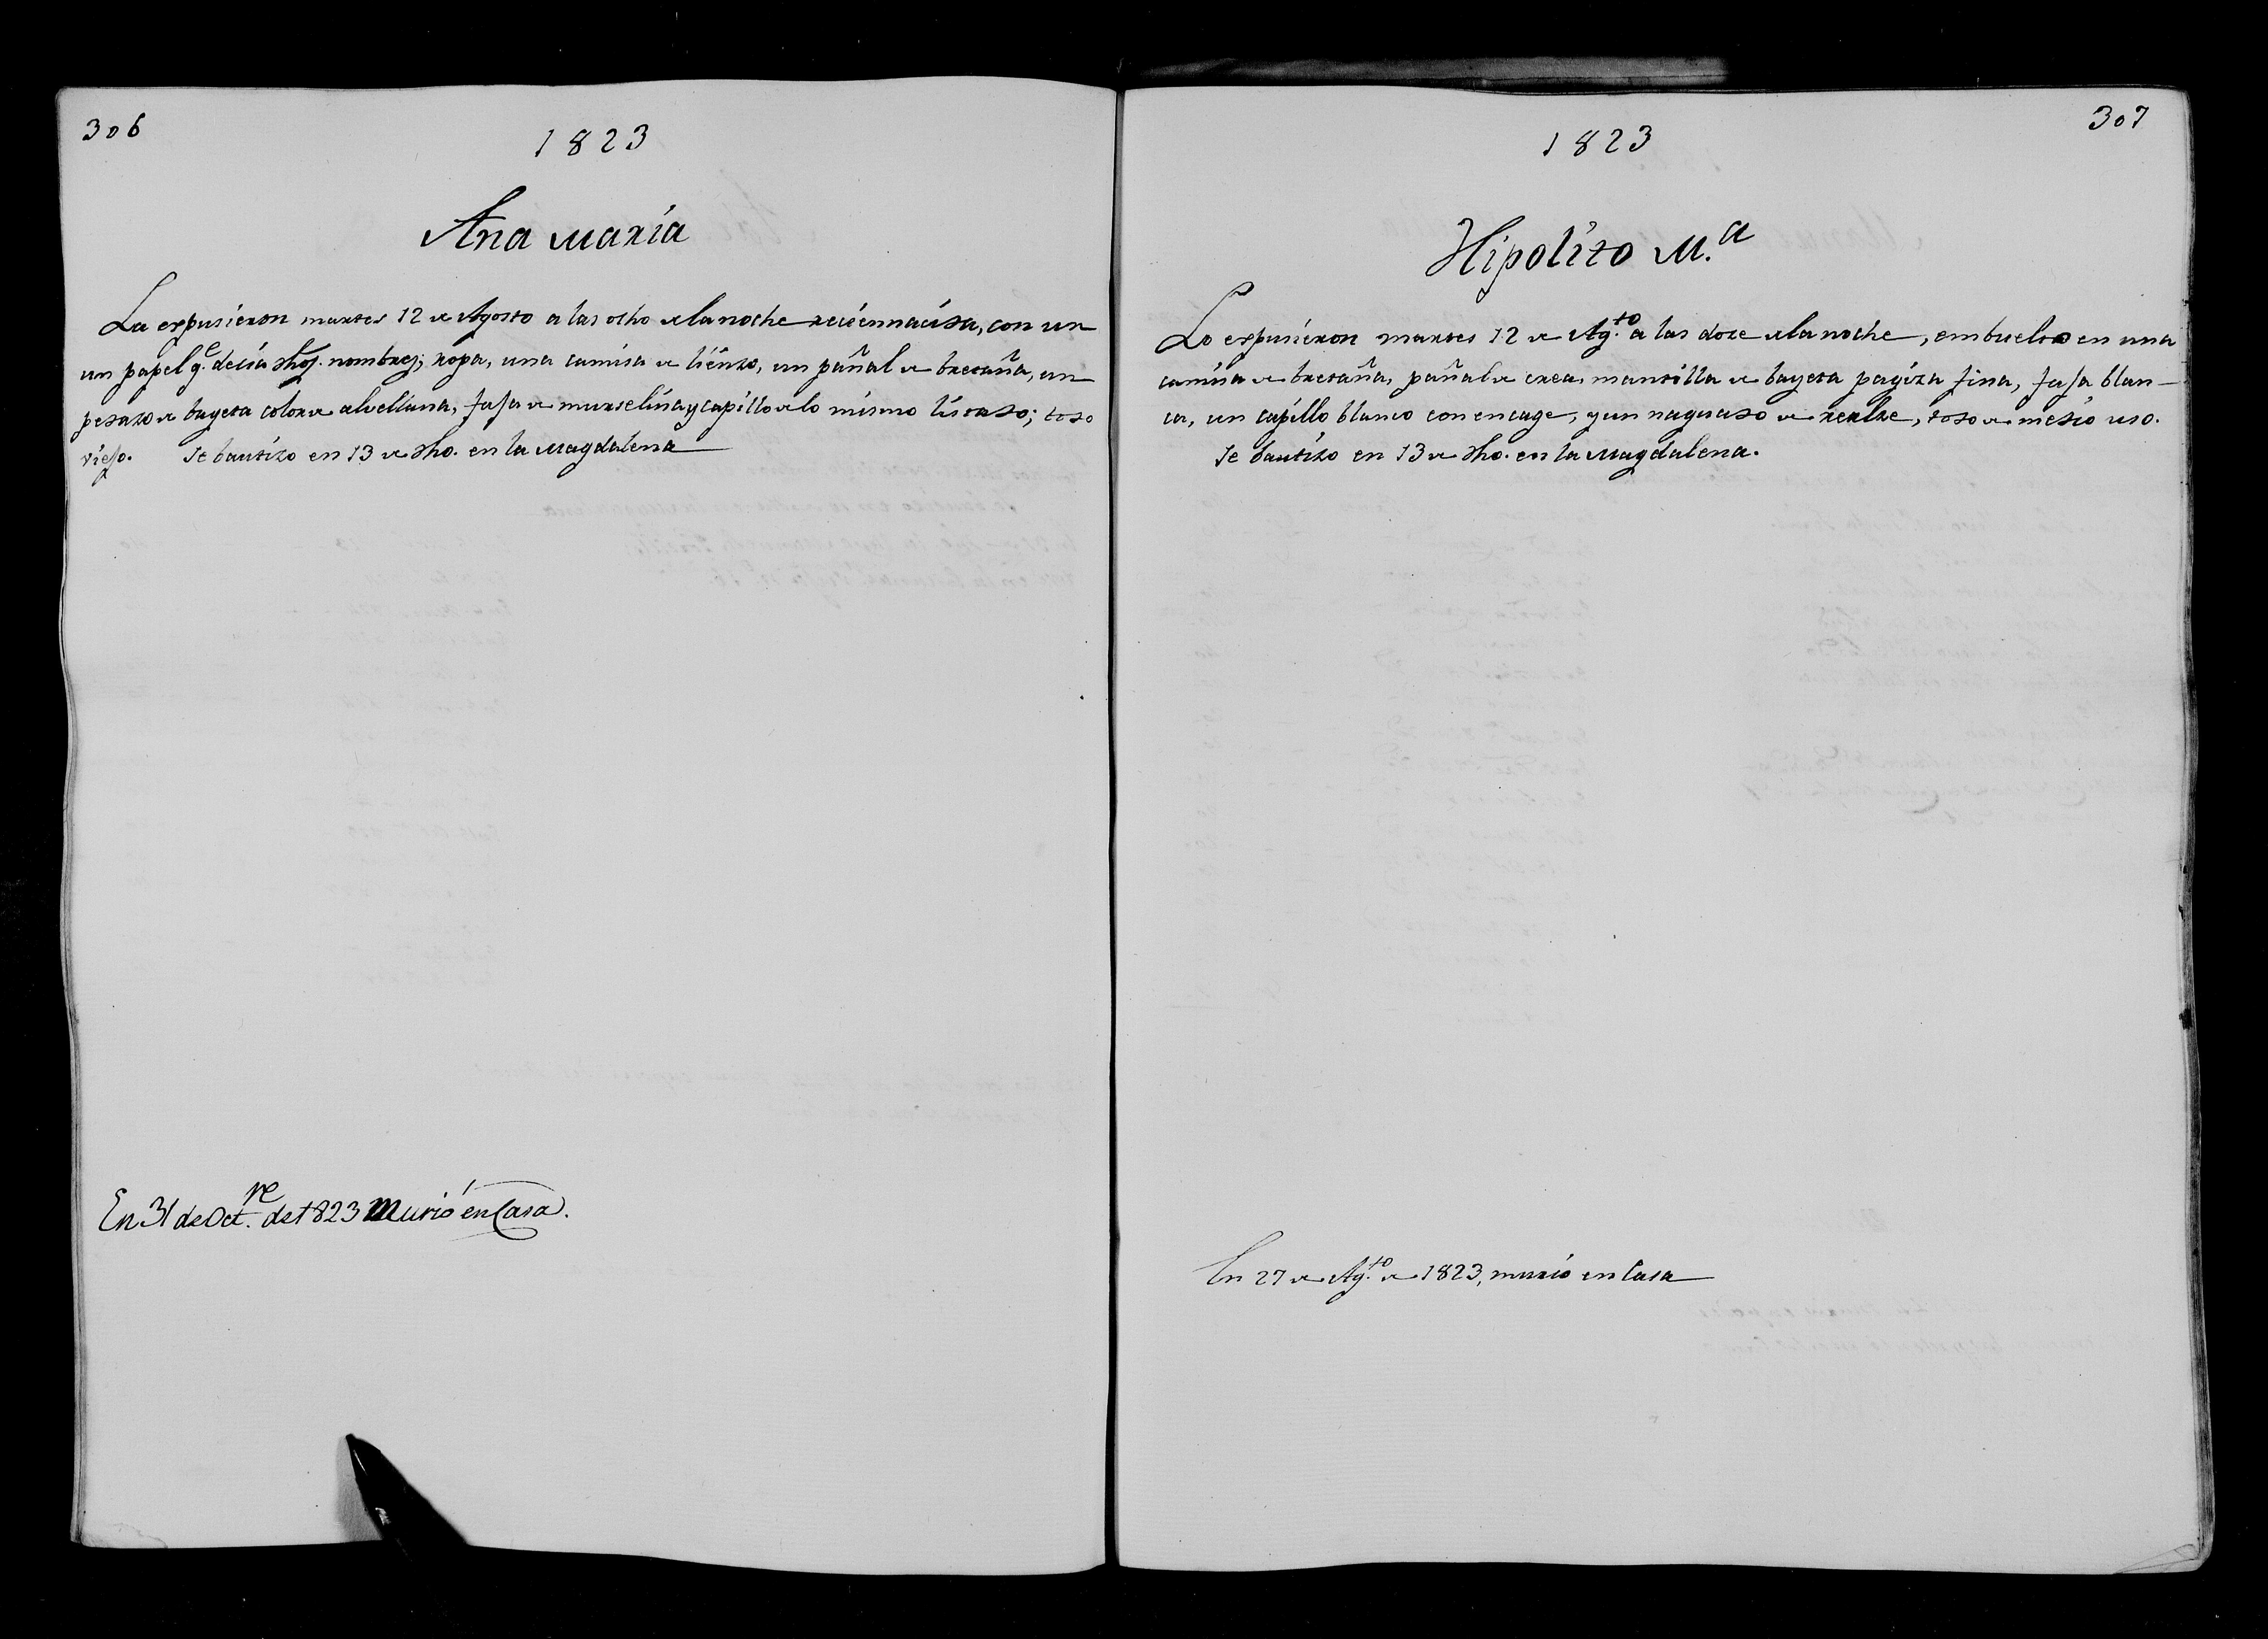 306
1823
Ana Maria
La expusieron martes 12 de Agosto a las ocho de la noche recien nacida, con un
un papel q.e decia dhos. nombres; ropa, una camisa de lienzo, un pañal de bretaña, un
pedazo de bayeta color de alvellana, faja de murselina y capillo de lo mismo listado; todo
viejo. Se bautizo en 13 de dho. en la Magdalena
En 31 de Oct.re de 1823 Murió en Casa.
307
1823
Hipolito M.a
Lo expusieron martes 12 de Ag.to a las doze de la noche, embuelto en una
camisa de bretaña, pañal de crea, mantilla de bayeta pagiza fina, faja blan-
ca, un capillo blanco con encage, y un naguado de realze, todo de medio uso.
Se bautizo en 13 de dho. en la Magdalena.
En 27 de Ag.to de 1823, murio en Casa